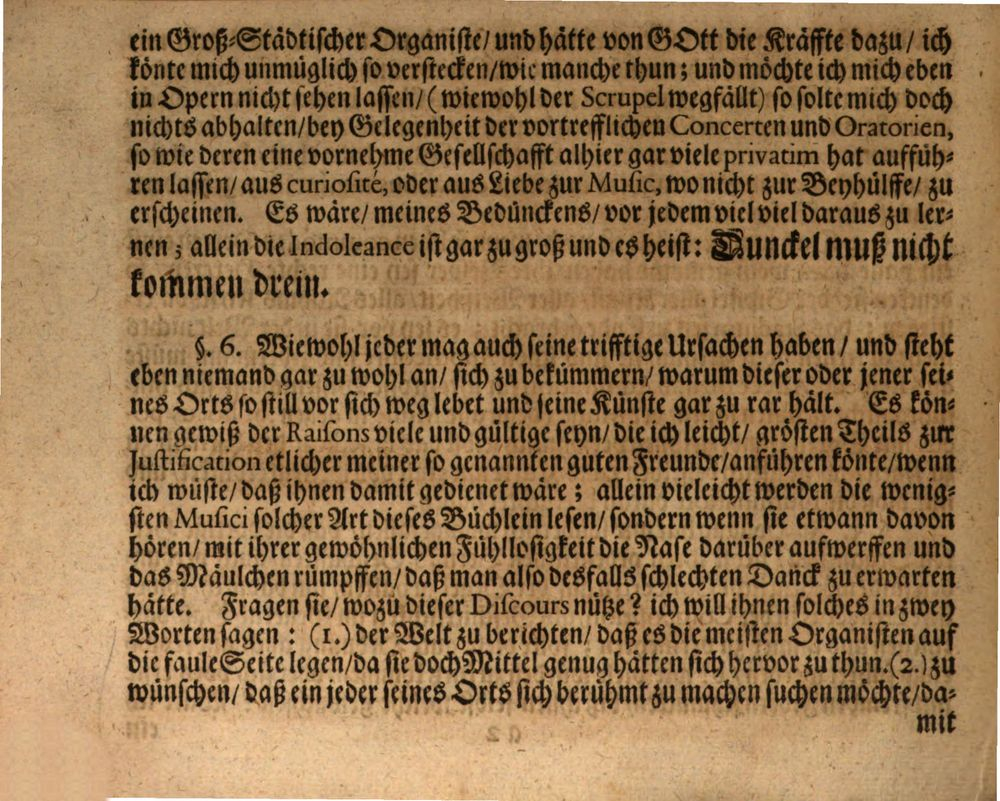 ein Groß-Städtischer Organiste/ und hätte von GOtt die Kräffte dazu/ ich
könte mich unmüglich so verstecken/wie manche thun; und möchte ich mich eben
in Opern nicht sehen lassen/ (wiewohl der Scrupel wegfällt) so solte mich doch
nichts abhalten/bey Gelegenheit der vortrefflichen Concerten und Oratorien,
so wie deren eine vornehme Gesellschafft alhier gar viele privatim hat auffüh-
ren lassen/ aus curiosité, oder aus Liebe zur Music, wo nicht zur Beyhülffe/ zu
erscheinen. Es wäre/ meines Bedünckens/ vor jedem viel viel daraus zu ler-
nen; allein die Indoleance ist gar zu groß und es heist: Dunckel muß nicht
kommen drein.
§. 6. Wiewohl jeder mag auch seine trifftige Ursachen haben/ und steht
eben niemand gar zu wohl an/ sich zu bekümmern/ warum dieser oder jener sei-
nes Orts so still vor sich weg lebet und seine Künste gar zu rar hält. Es kön-
nen gewiß der Raisons viele und gültige seyn/ die ich leicht/ grösten Theils zur
Justification etlicher meiner so genannten guten Freunde/anführen könte/wenn
ich wüste/ daß ihnen damit gedienet wäre; allein vieleicht werden die wenig-
sten Musici solcher Art dieses Büchlein lesen/ sondern wenn sie etwann davon
hören/ mit ihrer gewöhnlichen Fühllosigkeit die Nase darüber aufwerffen und
das Mäulchen rümpffen/ daß man also desfalls schlechten Danck zu erwarten
hätte. Fragen sie/ wozu dieser Discours nütze? ich will ihnen solches in zwey
Worten sagen: (1.) der Welt zu berichten/ daß es die meisten Organisten auf
die faule Seite legen/da sie doch Mittel genug hätten sich hervor zu thun.(2.) zu
wünschen/ daß ein jeder seines Orts sich berühmt zu machen suchen möchte/da-
mit